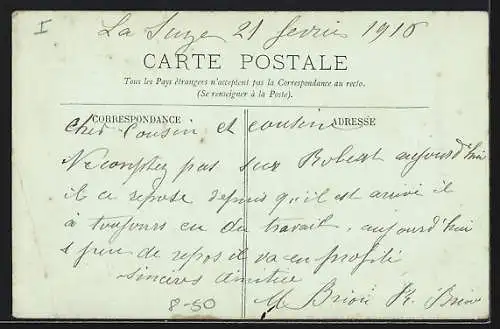 I
La Suze 21 fevrier 1916
CARTE POSTALE
Tous les Pays étrangers n'acceptent pas la Correspondance au recto.
(Se renseigner à la Poste).
CORRESPONDANCE
ADRESSE
cher Cousin et cousine
Ne comptez pas sur Robert aujourd'hui
il ce repose depuis qu'il est arrivé il
à toujours eu du travail, aujourd'hui
1 peu de repos il va en profité
sincères amitiée
M Brion R.
8-50